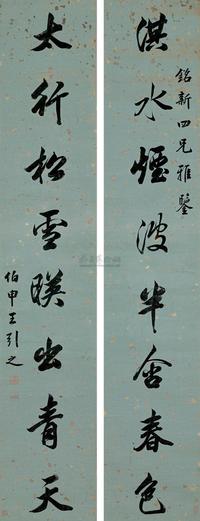 銘新四兄雅鑒
淇水煙波半含春色
太行松雪映出青天
伯申王引之